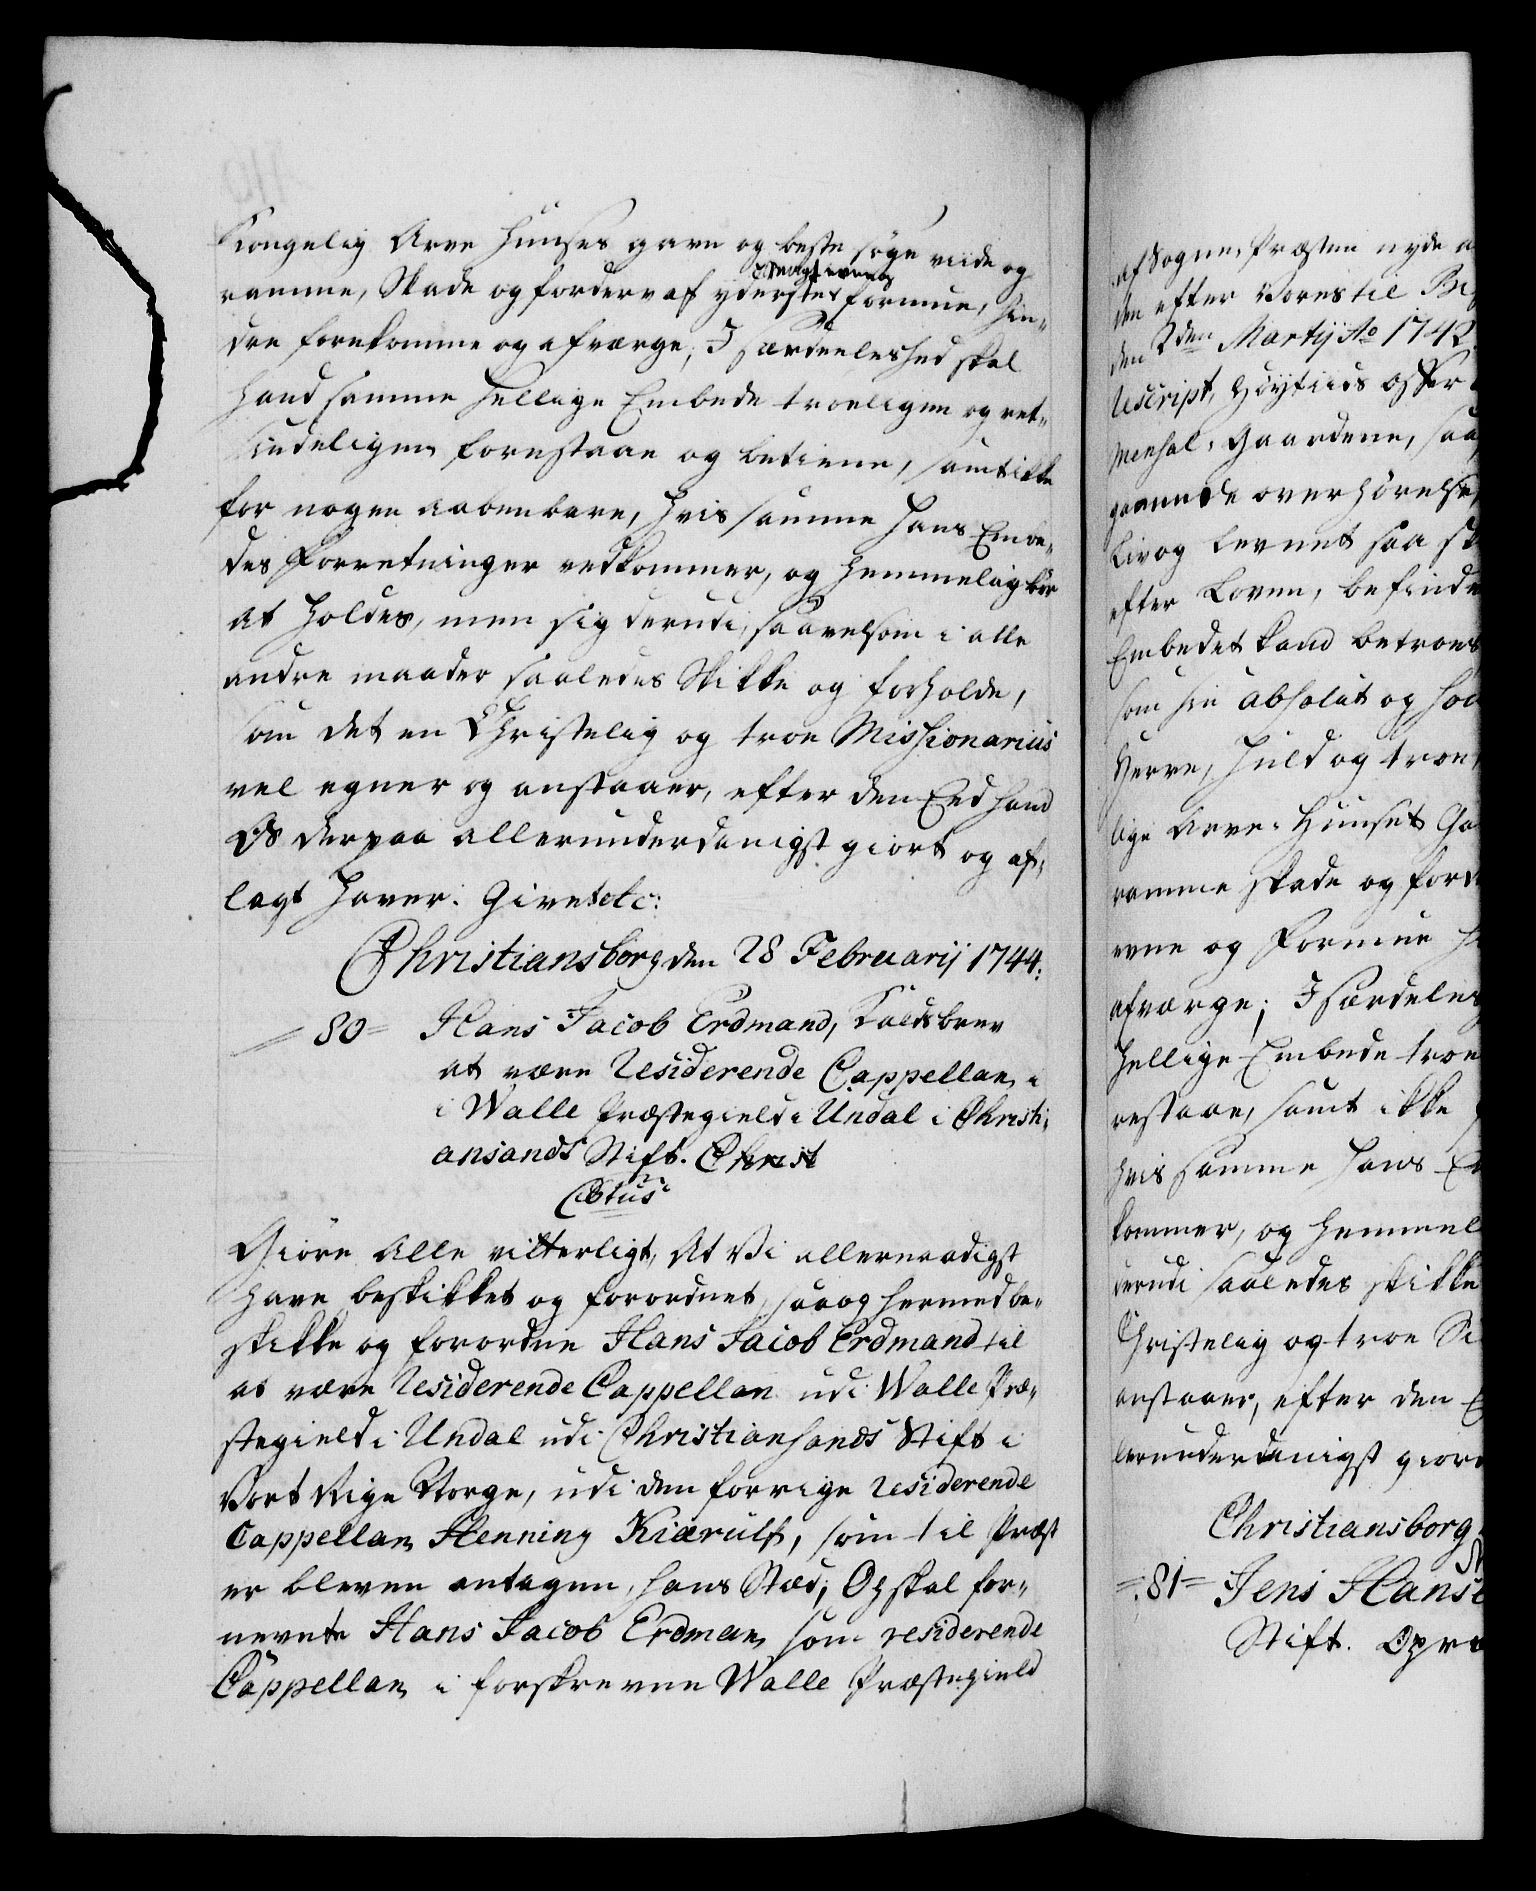 Kongelig Arve Huuses gavn og beste søge viide og
ramme, Skade og forderv af yderste formue, hin-
Magt evne og
dre forekomme og afværge; I særdeeleshed skal
hand samme hellige Embede troeligen og ret-
sindeligen forestaae og betiene, samt ikke
for nogen aabenbare, hvis samme hans Embe-
des Forretninger vedkommer, og hemmelig bør
at holdes, men sig derudi, saavelsom i alle
andre maader saaledes Skikke og forholde,
som det en Christelig og troe Missionarius
vel egner og anstaaer, efter den Eed hand
Os derpaa allerunderdanigst giort og af-
lagt haver. Givet etc:
Christiansborg den 28 Februarij 1744.
= 80 = Hans Jacob Erdmand, Kaldsbrev
at være Residerende Cappellan i
i Walle Præstegield i Undal i Christi-
ansands Stift. Christ
C6tus
Giøre Alle vitterligt, At Vi allernaadigst
have beskikket og forordnet, saa og hermed be-
skikke og forordne Hans Jacob Erdmand til
at være Residerende Cappellan udi Walle Præ-
stegield i Undal udi Christiansands Stift i
Vort Rige Norge, udi den forrige residerende
Cappellan Henning Kiærulf, som til Præst
er bleven antagen, hans Stæd; Og skal for-
nevnte Hans Jacob Erdman som residerende
Cappellan i forskrevne Walle Præstegield
af Sogne-Præsten nyde
den efter Vores til
den 2den Martij Ao 1742.
Rescript, Høytiids offer
Mensal-Gaardene, saa
overhørelse
Liv og Levnet saa
efter Loven, befinde
Embedet kand betroes
som sin absolut og
Herre, huld og troe,
lige Arve-Huuset
ramme skade og
evne og Formue
afværge; I særdeles
hellige Embede troe
restaae, samt ikke
hvis samme hans
kommer, og hemmel
derudi saaledes skikke
Christelig og troe
anstaaer, efter den
lerunderdanigst giort
Christiansborg
= 81 = Jens Hans
Stift.